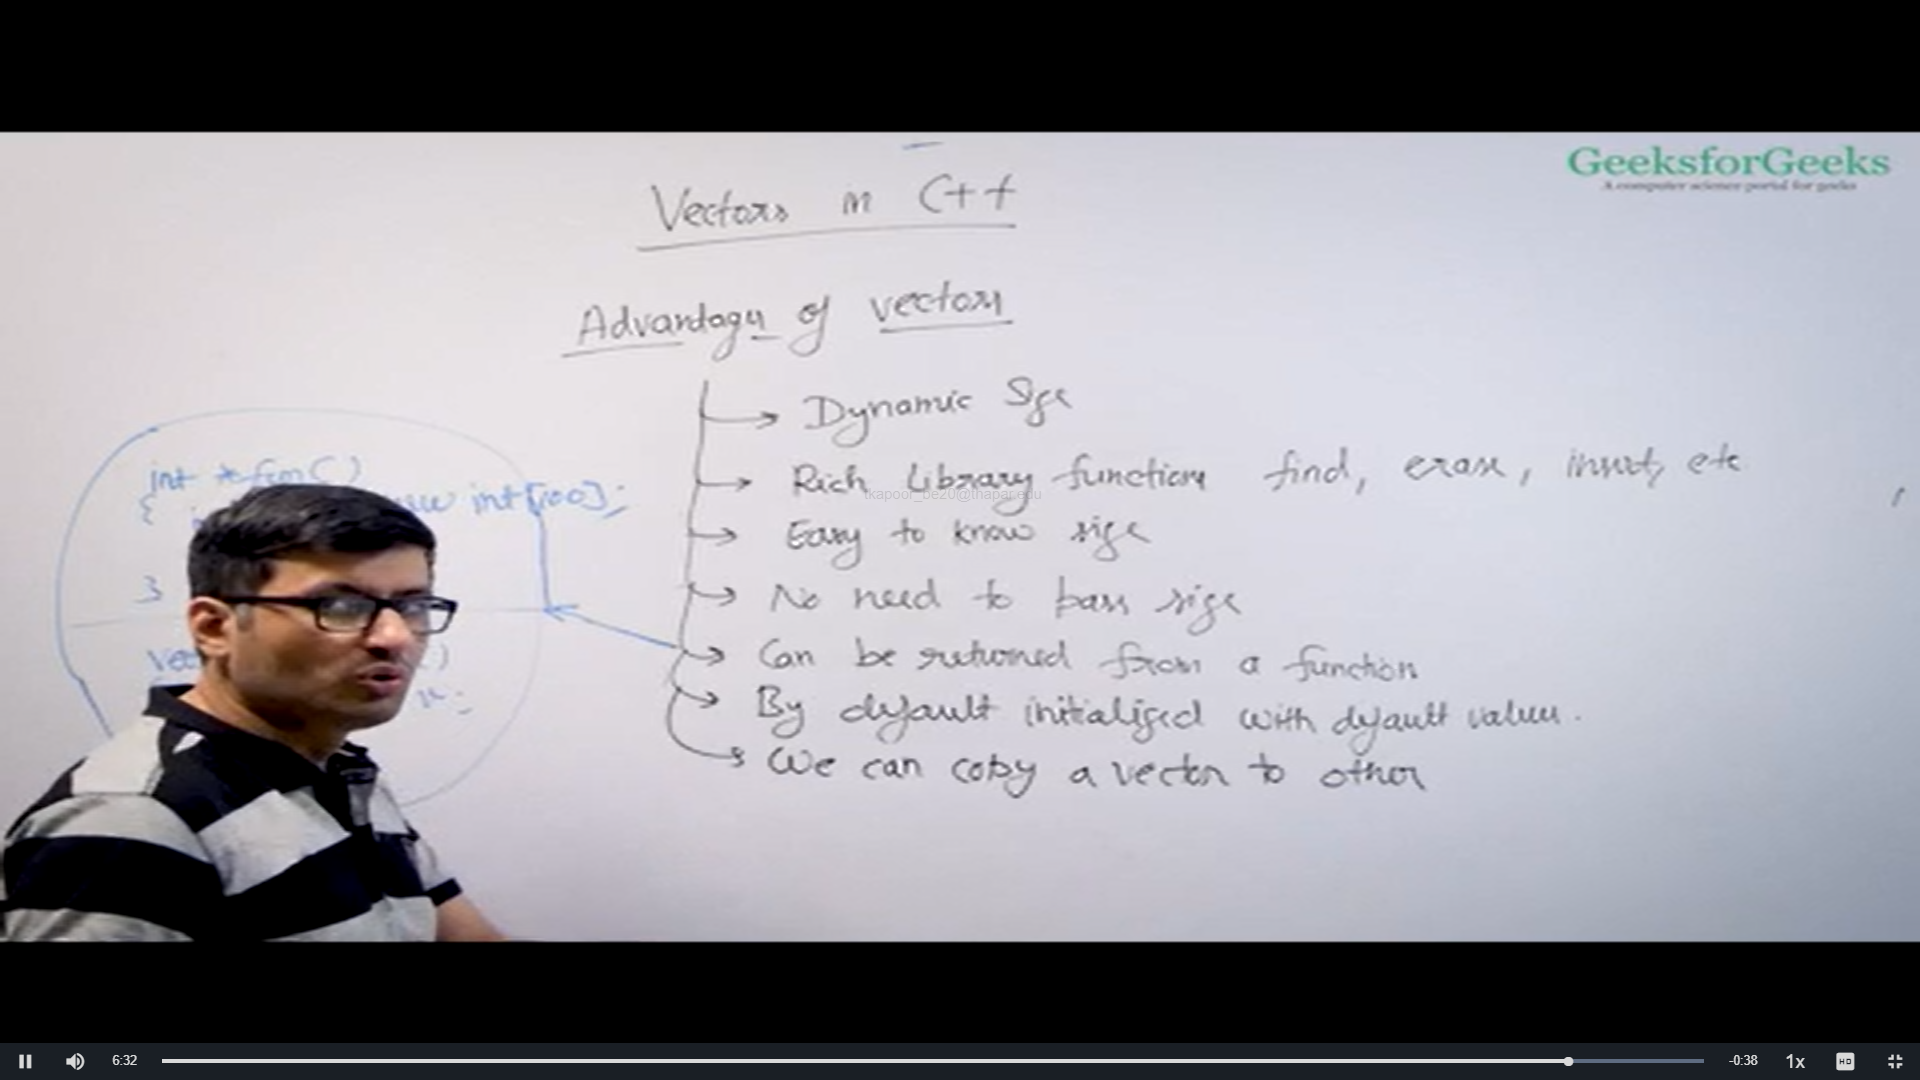 GeeksforGeeks
A computer science portal for geeks
Vectors in C++
Advantages of vectors
Dynamic Size
Rich Library functions find, erase, insert, etc
tkapool_be20@thapar.edu
Easy to know size
No need to pass size
Can be returned from a function
By default initialized with default values.
We can copy a vector to other
int *fun()
{
new int[100];
}
6:32
-0:38
1x
HD